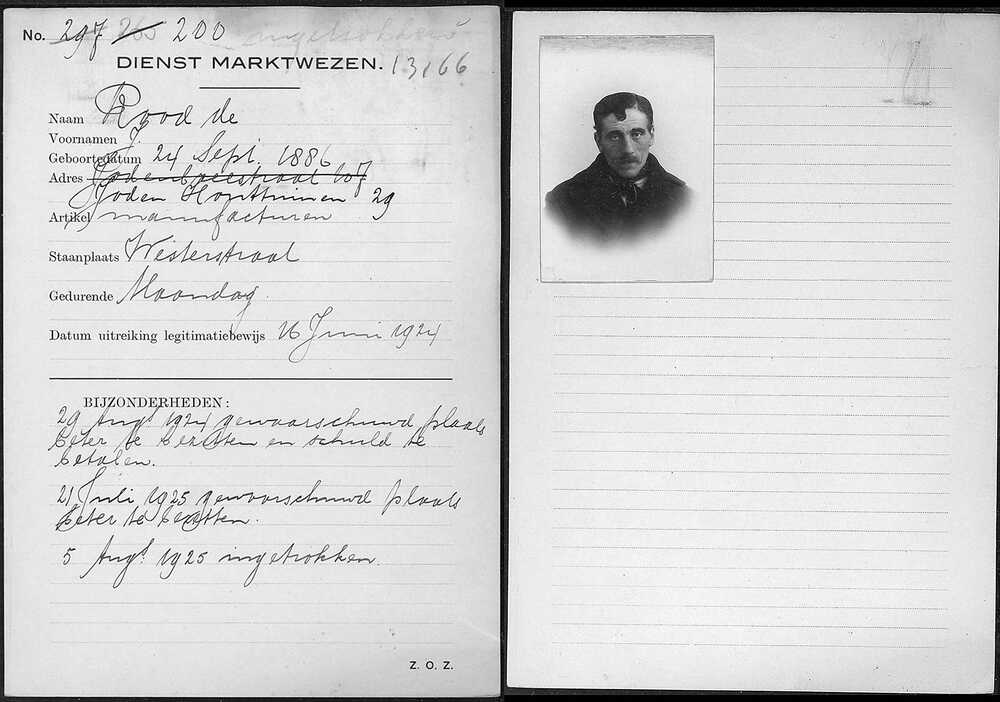 No. 297 265 200 ingetrokken
DIENST MARKTWEZEN. 13166
Naam Rood de
Voornamen J.
Geboortedatum 24 Sept. 1886
Adres Jodenbreestraat 107
Joden Houttuinen 29
Artikel manufacturen
Staanplaats Westerstraat
Gedurende Maandag.
Datum uitreiking legitimatiebewijs 16 Juni 1924
BIJZONDERHEDEN:
29 Augt. 1924 gewaarschuwd plaats
beter te bezetten en schuld te
betalen.
21 Juli 1925 gewaarschuwd plaats
beter te bezetten.
5 Augt. 1925 ingetrokken.
Z. O. Z.